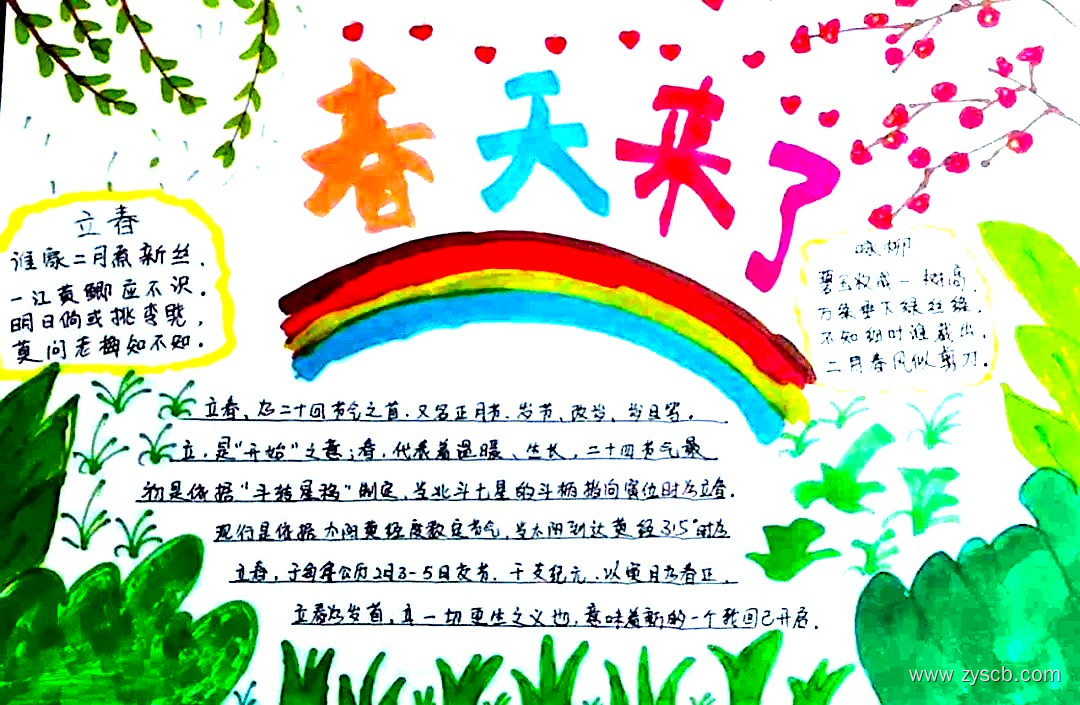 春天来了
立春
谁家二月煮新丝，
一江黄鲫应不识。
明日倘或桃李晓，
莫问老梅知不知。
咏柳
碧玉妆成一树高，
万条垂下绿丝绦。
不知细叶谁裁出，
二月春风似剪刀。
立春，为二十四节气之首。又名正月节、岁节、改岁、岁旦等。
立，是“开始”之意；春，代表着温暖、生长，二十四节气最
初是依据“斗转星移”制定，当北斗七星的斗柄指向寅位时为立春。
现行是依据太阳黄经度数定节气，当太阳到达黄经315°时为
立春，于每年公历2月3-5日交节。干支纪元，以寅月为春正、
立春为岁首，乃一切更生之义也，意味着新的一个轮回已开启。
www.zyscb.com